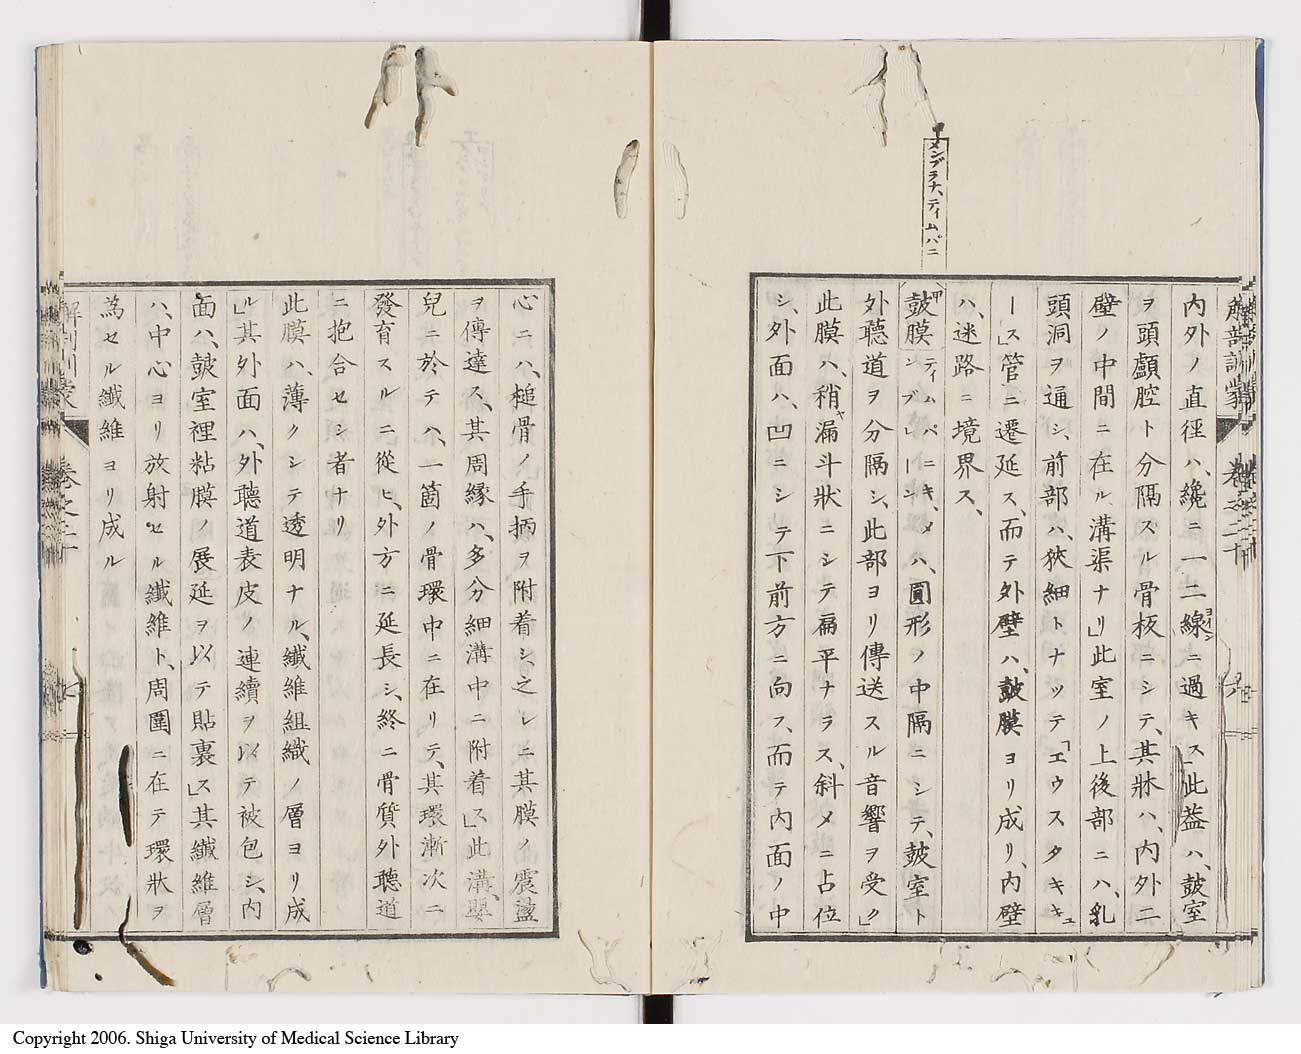 メンブラナ、ティムパニ
解剖訓蒙
巻之二十
内外ノ直徑ハ、纔ニ一二線ニ過キス」此蓋ハ、皷室
ライン
ヲ頭顱腔ト分隔スル骨板ニシテ、其牀ハ、内外二
壁ノ中間ニ在ル溝渠ナリ」此室ノ上後部ニハ、乳
頭洞ヲ通シ、前部ハ、狹細トナッテ「エウスタキキュ
ース」管ニ遷延ス、而テ外壁ハ、皷膜ヨリ成リ、内壁
ハ、迷路ニ境界ス、
皷膜
ティムパニキ、メ
ンブーレン
ハ、圓形ノ中隔ニシテ、皷室ト
外聽道ヲ分隔シ、此部ヨリ傳送スル音響ヲ受ク」
此膜ハ、稍漏斗狀ニシテ扁平ナラス、斜メニ占位
シ、外面ハ、凹ニシテ下前方ニ向フ、而テ内面ノ中
心ニハ、槌骨ノ手柄ヲ附着シ、之レニ其膜ノ震盪
ヲ傳達ス、其周緣ハ、多分細溝中ニ附着ス」此溝、嬰
兒ニ於テハ、一箇ノ骨環中ニ在リテ、其環漸次ニ
發育スルニ從ヒ、外方ニ延長シ、終ニ骨質、外聽道
ニ抱合セシ者ナリ
此膜ハ、薄クシテ透明ナル、纖維組織ノ層ヨリ成
ル」其外面ハ、外聽道表皮ノ連續ヲ以テ被包シ、内
面ハ、皷室裡粘膜ノ展延ヲ以テ貼裏ス」其纖維層
ハ、中心ヨリ放射セル纖維ト、周圍ニ在テ環狀ヲ
為セル纖維ヨリ成ル
解剖訓蒙
巻之二十